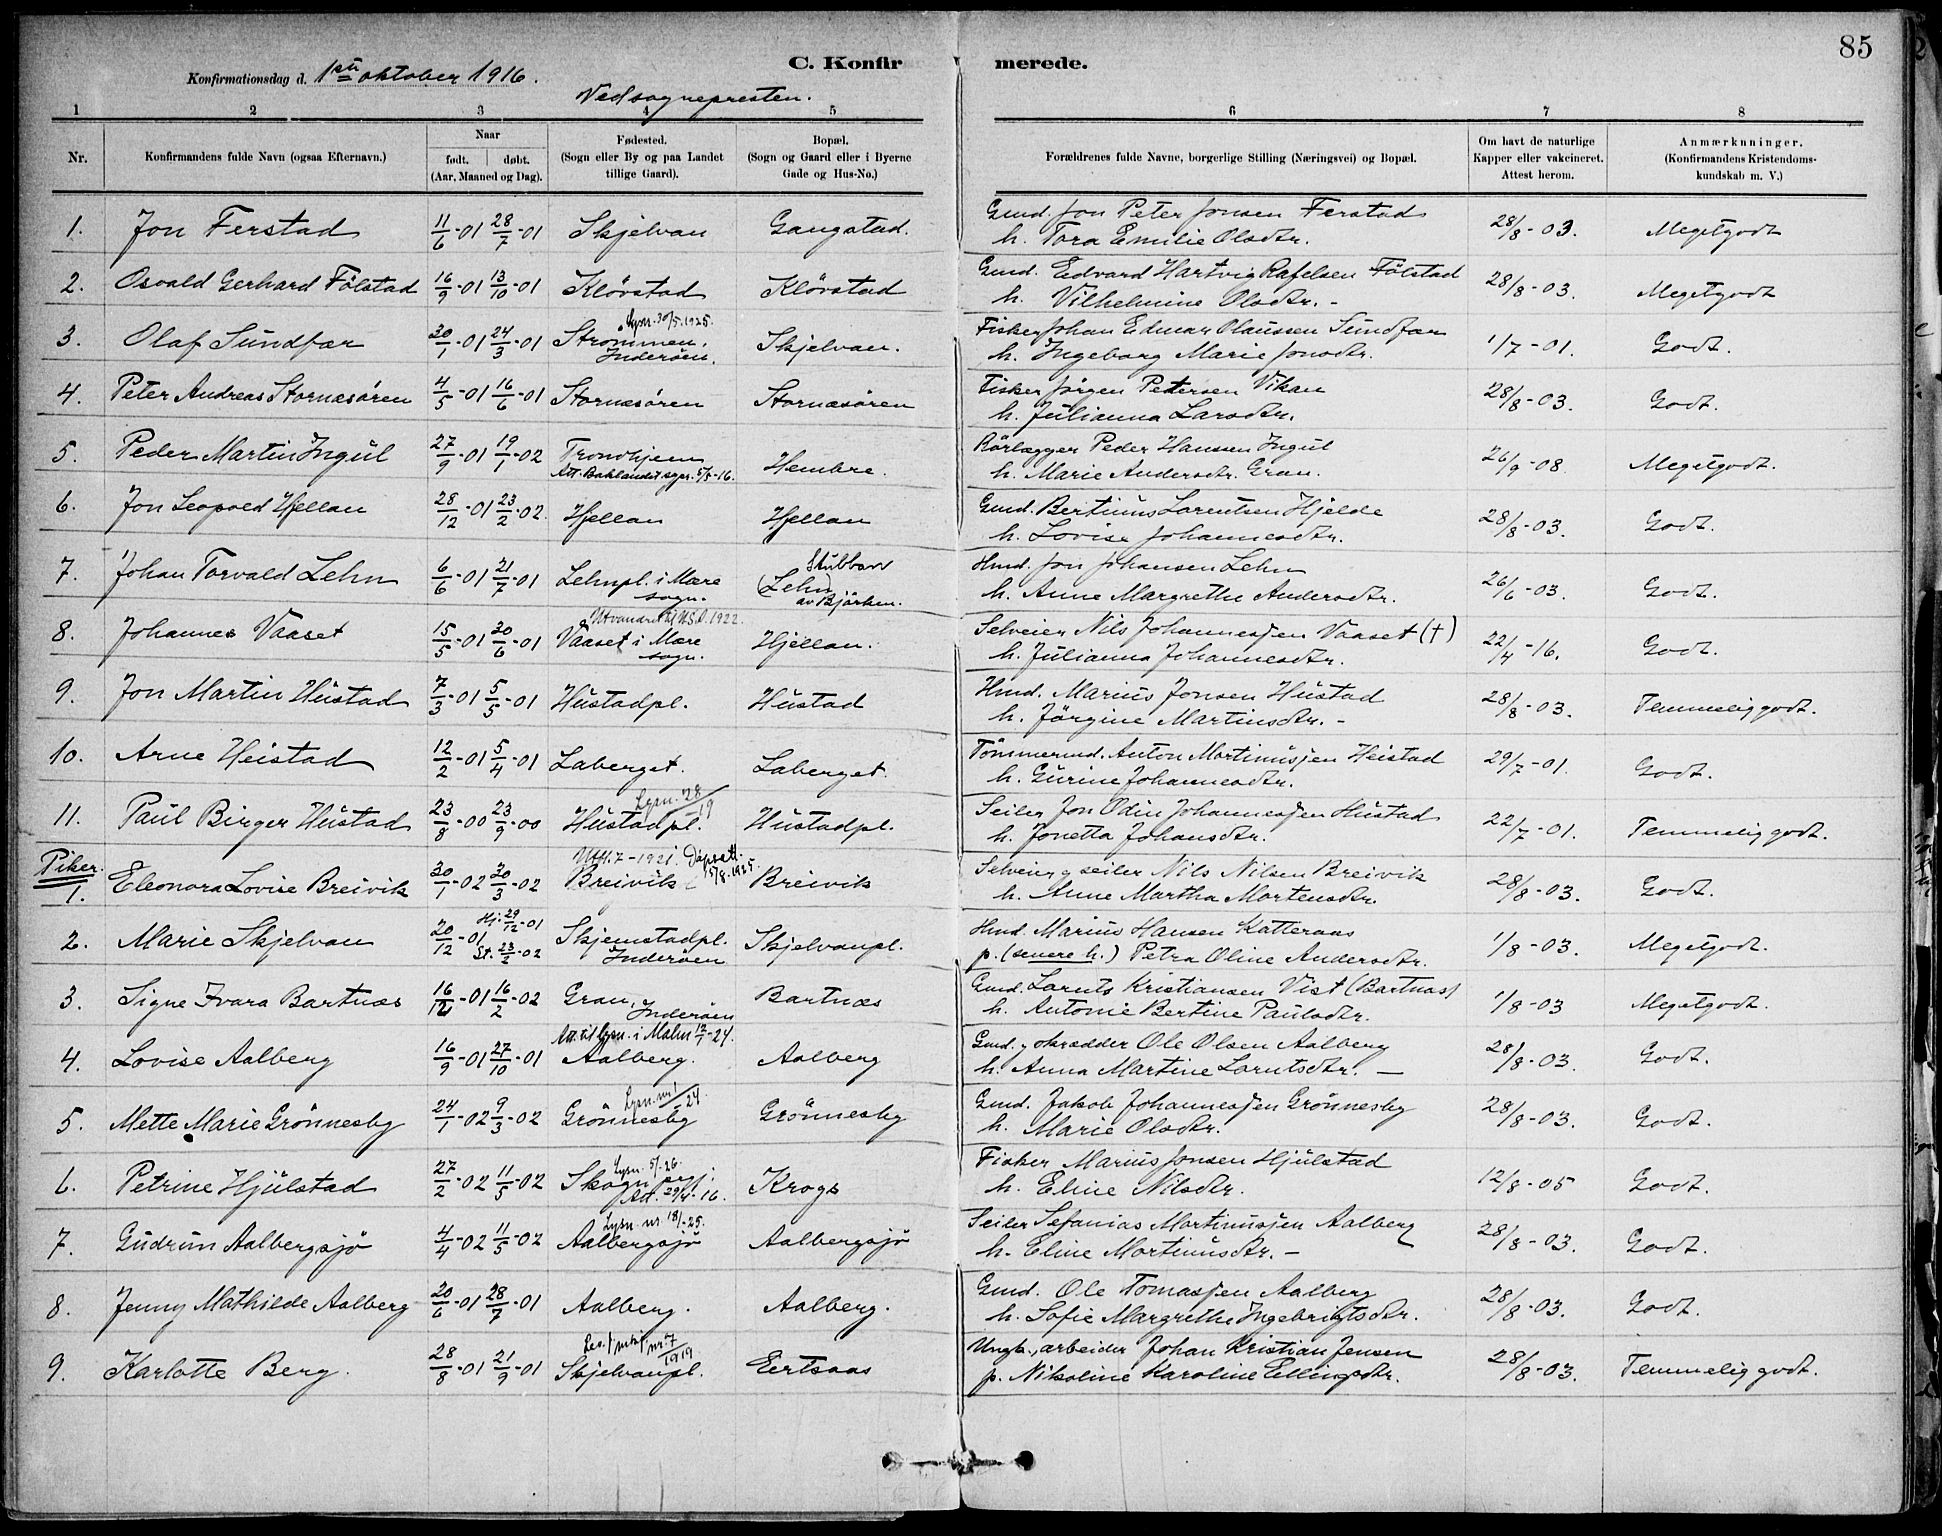 85
C. Konfirmerede.
Konfirmationsdag d. 1ste oktober 1916.
Ved sognepresten.
1 2 3 4 5 6 7 8
Nr. Konfirmandens fulde Navn (ogsaa Efternavn.) Naar født. døbt. (Aar, Maaned og Dag). Fødested. (Sogn eller By og paa Landet tillige Gaard). Bopæl. (Sogn og Gaard eller i Byerne Gade og Hus-No.) Forældrenes fulde Navne, borgerlige Stilling (Næringsvei) og Bopæl. Om havt de naturlige Kapper eller vakcineret. Attest herom. Anmærkninger. (Konfirmandens Kristendomskundskab m. V.)
1. Jon Ferstad 11/6-01 28/7-01 Skjelvan Gangstad. Gmd. Jon Peter Jonsen Ferstad 28/8-03. Megetgodt
h. Tora Emilie Olsdtr.
2. Osvald Gerhard Fölstad 16/9-01 13/10-01 Klövstad Klövstad Gmd. Edvard Hartvig Rafelsen Fölstad 28/8-03. Megetgodt
h. Vilhelmine Olsdtr. -
Lysn. 30/5.1925.
3. Olaf Sundfær 30/1-01 24/3-01 Strömmen, Inderöen. Skjelvan. Fisker Johan Edmar Olaussen Sundfær 1/7-01. Godt.
h. Ingeborg Marie Jonsdtr.
4. Peter Andreas Stornæsören 4/5-01 16/6-01 Stornæsören Stornæsören Fisker Jörgen Petersen Vikan 28/8-03. Godt.
h. Julianna Larsdtr.
5. Peder Martin Ingul 27/9-01 19/1-02 Trondhjem Hembre. Rörlægger Peder Hansen Ingul 26/9-08. Megetgodt.
Att. Baklandet sgpr. 5/5-16. h. Marie Andersdtr. Gran.
6. Jon Leopold Hjellan 28/12-01 23/2-02. Hjellan Hjellan Gmd. Bertinus Lorentsen Hjelde 28/8-03. Godt.
h. Lovise Johannesdtr.
7. Johan Torvald Lehn 6/6-01 21/7-01 Lehnpl. i Mære sogn. Stubban (Lehn) av Björken. Hmd. Jon Johansen Lehn 26/6-03. Godt.
h. Anne Margrethe Andersdtr.
Utvandret til U.S.A. 1922.
8. Johannes Vaaset 15/5-01 30/6-01 Vaaset i Mære sogn. Hjellan. Selveier Nils Johannessen Vaaset (†) 22/4-16. Godt.
h. Julianna Johannesdtr.
9. Jon Martin Hustad 7/3-01 5/5-01 Hustadpl. Hustad Hmd. Marius Jonsen Hustad 28/8-03. Temmelig godt.
h. Jörgine Martinsdtr. -
10. Arne Heistad 12/2-01 5/4-01 Laberget. Laberget. Tömmermd. Anton Martinussen Heistad 29/7-01. Godt.
h. Gurine Johannesdtr.
Lysn. 28/19
11. Paul Birger Hustad 23/8-00 23/9-00 Hustadpl. Hustadpl. Seiler Jon Odin Johannessen Hustad 22/7-01. Temmelig godt.
h. Jonetta Johansdtr.
Piker.
Utfl. 7-1921. Dåpsatt. 15/8.1925.
1. Eleonora Lovise Breivik 30/1-02 30/3-02 Breivik Breivik Selveier g seiler Nils Nilsen Breivik 28/8-03. Godt.
h. Anne Martha Mortensdtr.
2. Marie Skjelvan 20/12-01 Hj. 29/12-01 St. 23/2-02 Skjemstadpl. Inderöen Skjelvanpl. Hmd. Marius Hansen Katteraas 1/8-03. Megetgodt.
p. (senere h.) Petra Oline Andersdtr.
3. Signe Ivara Bartnæs 16/12-01 16/2-02 Gran, Inderöen Bartnæs Gmd. Lornts Kristiansen Vist (Bartnæs) 1/8-03 Megetgodt.
h. Antonie Bertine Paulsdtr.
Att. til lysn. i Malm 12/1-24.
4. Lovise Aalberg 16/9-01 27/10-01 Aalberg. Aalberg Gmd. g skrædder Ole Olsen Aalberg 28/8-03. Godt.
h. Anna Martine Lorntsdtr. -
Lysn. nr. 1/-24.
5. Mette Marie Grönnesby 24/1-02 9/3-02 Grönnesby Grönnesby Gmd. Jakob Johannessen Grönnesby 28/8-03. Godt.
h. Marie Olsdtr.
Lysn. 5/-26.
6. Petrine Hjulstad 27/2-02 11/5-02 Skogn prgj. Krogs Fisker Marius Jonsen Hjulstad 12/8-05 Godt.
Att. 29/4-16. h. Eline Nilsdtr.
Lysn. nr. 18/-25.
7. Gudrun Aalbergsjö 4/4-02 11/5-02 Aalbergsjö Aalbergsjö Seiler Sefanias Martinussen Aalberg 28/8-03. Godt.
h. Eline Martinusdtr. -
8. Jenny Mathilde Aalberg 20/6-01 28/7-01 Aalberg. Aalberg. Gmd. Ole Tomassen Aalberg 28/8-03. Godt.
h. Sofie Margrethe Ingebrigtsdtr.
nr. 7/1919
9. Karlotte Berg. 28/8-01 21/9-01 Skjelvanpl. Eertsaas Ungk., arbeider Johan Kristian Jensen 28/8-03. Temmelig godt.
p. Nikoline Karoline Ellingsdtr.